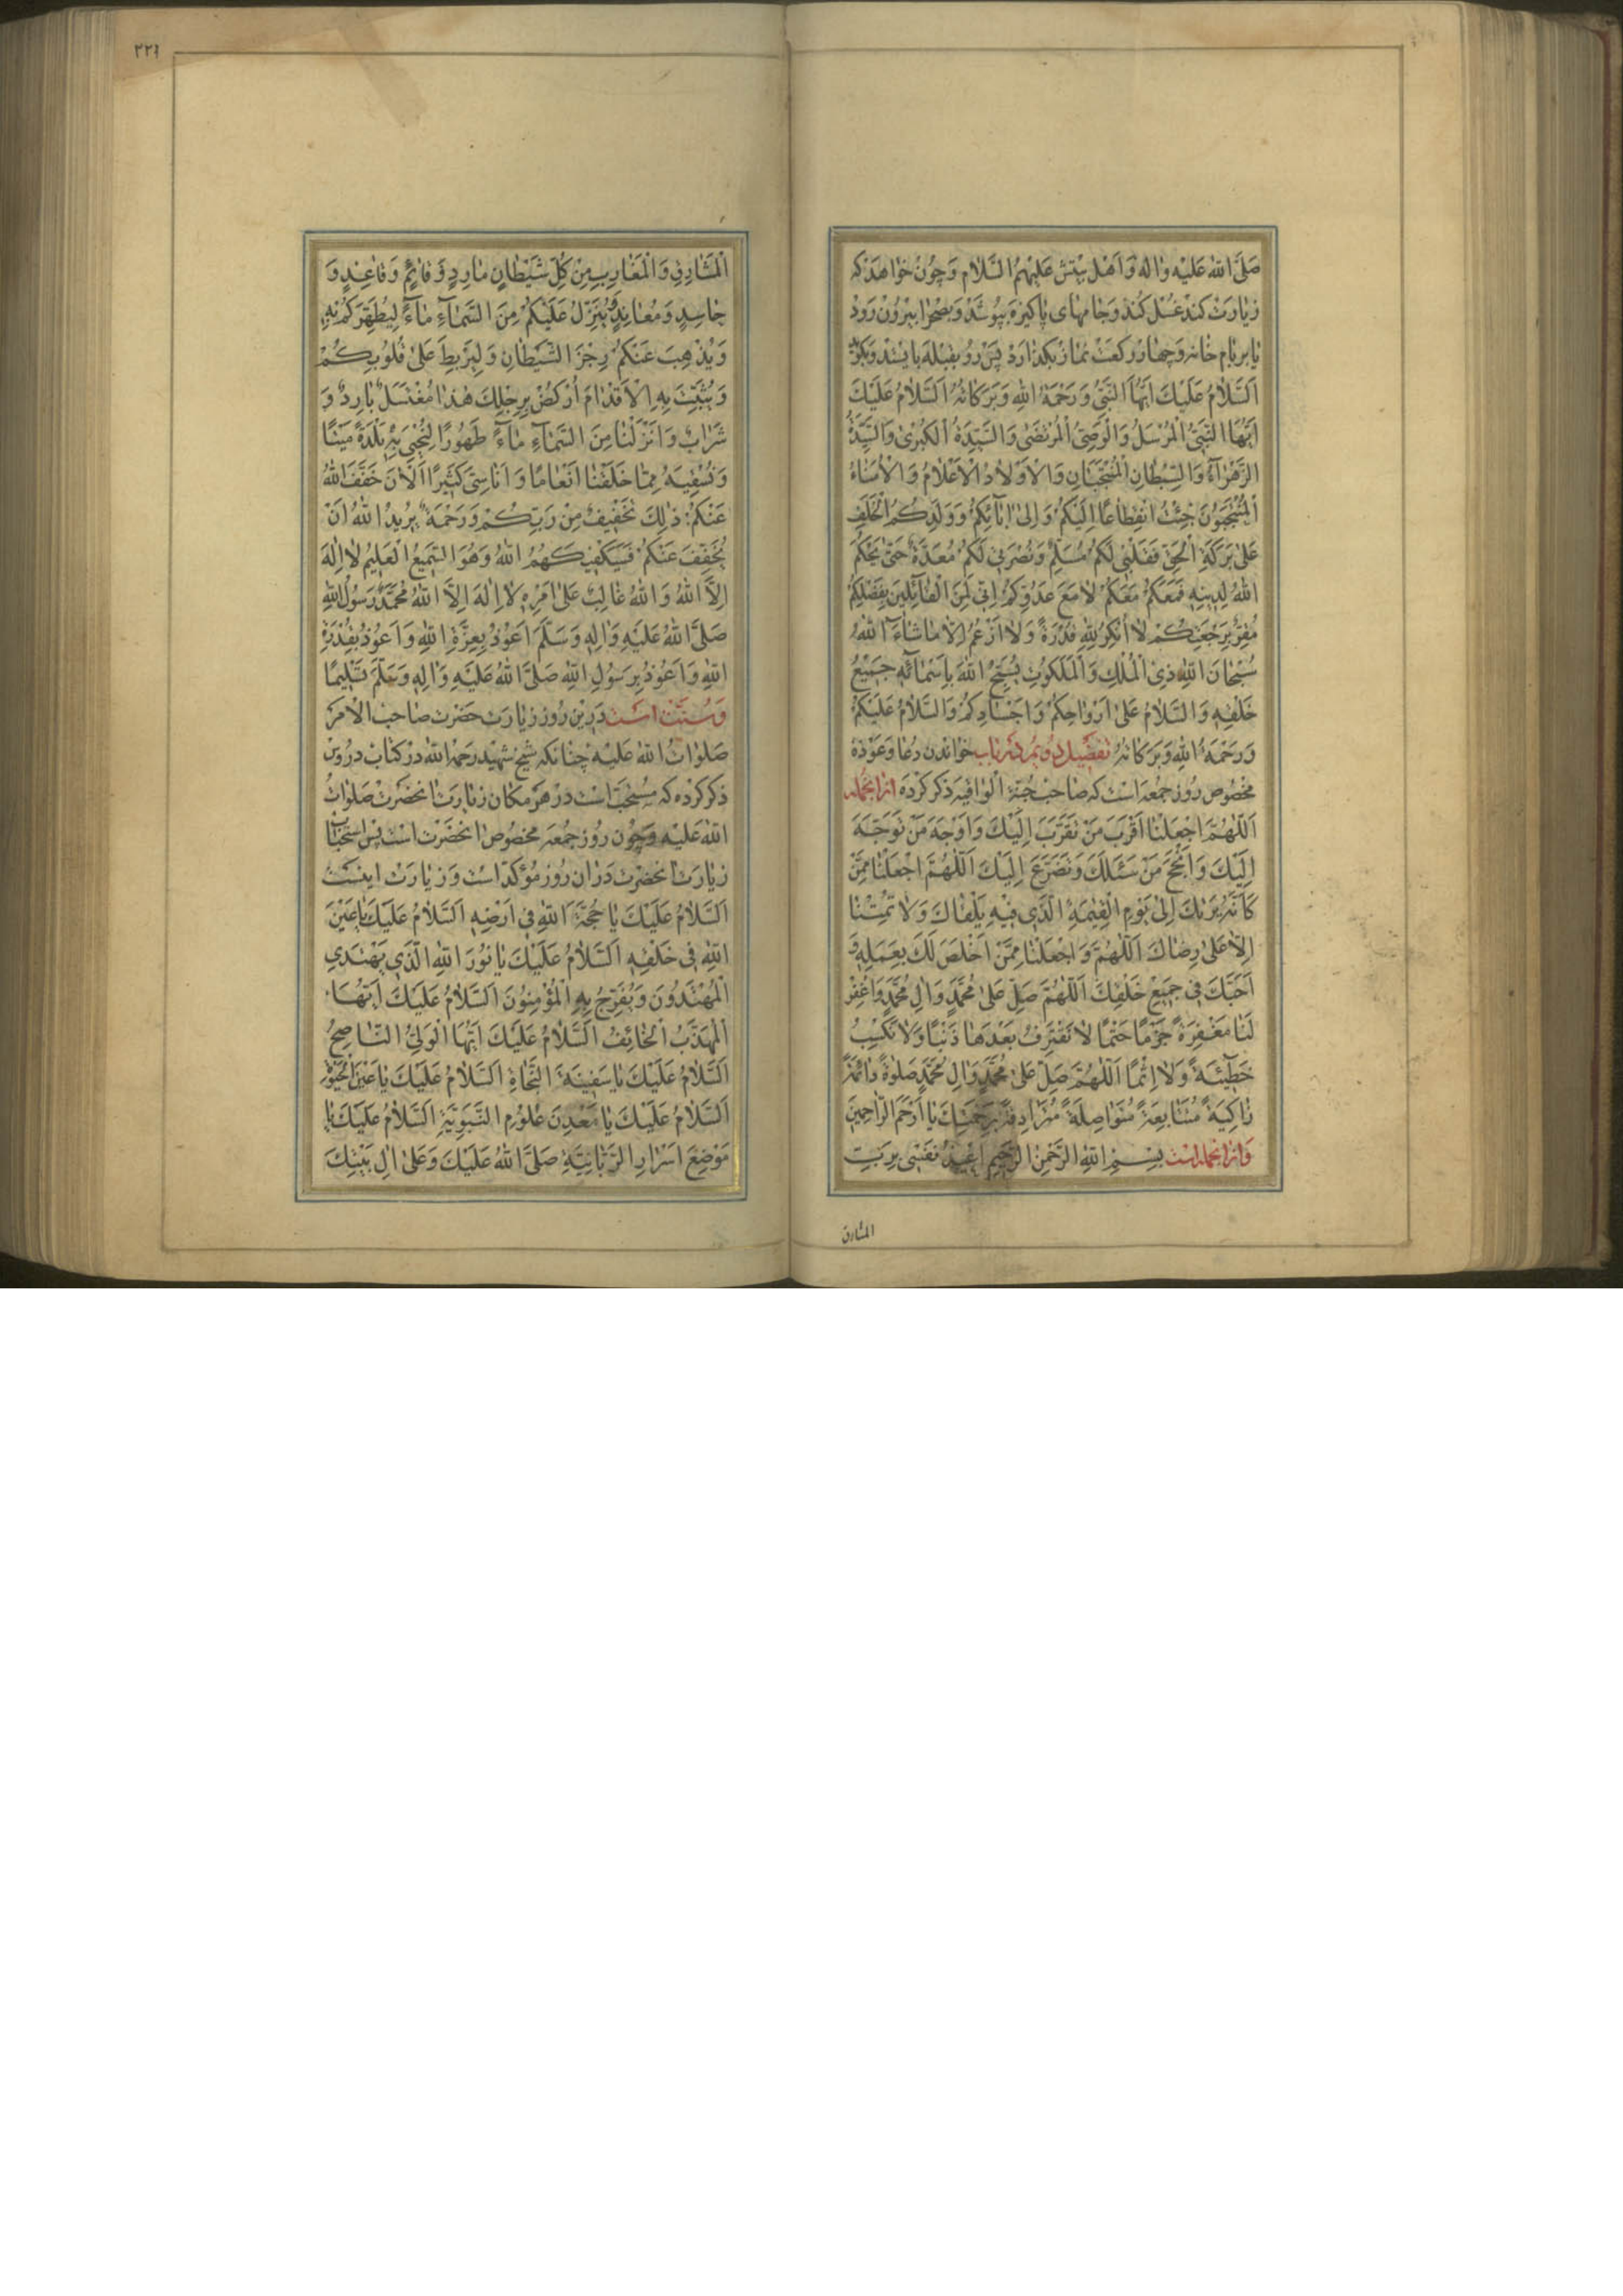 صَلَّى اللهُ عَلَيْهِ وَالِه وَاَهْل بَيْتِش عَلَيْهِمُ السَّلام وَچون خواهَد كه
زيارَت كند غسل كند وَجامهاى پاكيزه بپوشد وَبصحرا بيرون رود
يا بر بام خانه وَچهار ركعت نماز بكذارد پس رو بقبله بايستد وَبكويد
اَلسَّلامُ عَلَيْكَ اَيُّهَا النَّبِيُّ وَرَحْمَةُ اللهِ وَبَرَكاتُهُ اَلسَّلامُ عَلَيْكَ
اَيُّهَا النَّبِيُّ الْمُرْسَلُ وَالْوَصِيُّ الْمُرْتَضى وَالسَّيِّدَةُ الْكُبْرى وَالسَّيِّدَةُ
الزَّهْرآءُ وَالسِّبْطانِ الْمُنْتَجَبانِ وَالْاَوْلادُ الْاَعْلامُ وَالْاُمَناءُ
الْمُنْتَجَبُونَ جِئْتُ انْقِطاعًا اِلَيْكُمْ وَاِلى ابآئِكُمْ وَوَلَدِكُمُ الْخَلَفِ
عَلى بَرَكَةِ الْحَقِّ فَقَلْبى لَكُمْ مُسَلِّمٌ وَنُصْرَتى لَكُمْ مُعَدَّةٌ حَتّى يَحْكُمَ
اللهُ لِدينِه فَمَعَكُمْ مَعَكُمْ لا مَعَ عَدُوِّكُمْ اِنّى لَمِنَ الْقآئِلينَ بِفَضْلِكُمْ
مُقِرٌّ بِرَجْعَتِكُمْ لا اُنْكِرُ لِلهِ قُدْرَةً وَلا اَزْعُمُ اِلّا ما شآءَ اللهُ
سُبْحانَ اللهِ ذِى الْمُلْكِ وَالْمَلَكُوتِ يُسَبِّحُ اللهَ بِاَسْمآئِه جَميعُ
خَلْقِه وَالسَّلامُ عَلى اَرْواحِكُمْ وَاَجْسادِكُمْ وَالسَّلامُ عَلَيْكُمْ
وَرَحْمَةُ اللهِ وَبَرَكاتُهُ تفصيل دويم در باب خواندن دعا وَعوذه
مخصوص روز جمعه است كه صاحب جُنّة الواقيه ذكر كرده ازانجمله
اَللّهُمَّ اجْعَلْنا اَقْرَبَ مَنْ تَقَرَّبَ اِلَيْكَ وَاَوْجَهَ مَنْ تَوَجَّهَ
اِلَيْكَ وَاَنْجَحَ مَنْ سَئَلَكَ وَتَضَرَّعَ اِلَيْكَ اَللّهُمَّ اجْعَلْنا مِمَّنْ
كَاَنَّهُ يَرَاكَ اِلى يَوْمِ الْقِيمَةِ الَّذى فيهِ يَلْقاكَ وَلا تُمِتْنا
اِلّا عَلى رِضاكَ اَللّهُمَّ وَاجْعَلْنا مِمَّنْ اَخْلَصَ لَكَ بِعَمَلِه وَ
اَحَبَّكَ فى جَميعِ خَلْقِكَ اَللّهُمَّ صَلِّ عَلى مُحَمَّدٍ وَالِ مُحَمَّدٍ وَاغْفِرْ
لَنا مَغْفِرَةً جَزْمًا حَتْمًا لا نَقْتَرِفُ بَعْدَها ذَنْبًا وَلا نَكْسِبُ
خَطيئَةً وَلا اِثْمًا اَللّهُمَّ صَلِّ عَلى مُحَمَّدٍ وَالِ مُحَمَّدٍ صَلوةً دائِمَةً
زاكِيَةً مُتَتابِعَةً مُتَواصِلَةً مُتَرادِفَةً بِرَحْمَتِكَ يا اَرْحَمَ الرّاحِمينَ
وَازانجمله است بِسْمِ اللهِ الرَّحْمنِ الرَّحيمِ اُعيذُ نَفْسى بِرَبِّ
المشارق
٢٢٦
الْمَشارِقِ وَالْمَغارِبِ مِنْ كُلِّ شَيْطانٍ مارِدٍ وَقائِمٍ وَقاعِدٍ وَ
حاسِدٍ وَمُعانِدٍ وَيُنَزِّلُ عَلَيْكُمْ مِنَ السَّمآءِ مآءً لِيُطَهِّرَكُمْ بِه
وَيُذْهِبَ عَنْكُمْ رِجْزَ الشَّيْطانِ وَلِيَرْبِطَ عَلى قُلُوبِكُمْ
وَيُثَبِّتَ بِهِ الْاَقْدامَ اُرْكُضْ بِرِجْلِكَ هذا مُغْتَسَلٌ بارِدٌ وَ
شَرابٌ وَاَنْزَلْنا مِنَ السَّمآءِ مآءً طَهُورًا لِنُحْيِىَ بِه بَلْدَةً مَيْتًا
وَنُسْقِيَهُ مِمّا خَلَقْنا اَنْعامًا وَاَناسِىَّ كَثيرًا اَلْانَ خَفَّفَ اللهُ
عَنْكُمْ ذلِكَ تَخْفيفٌ مِنْ رَبِّكُمْ وَرَحْمَةٌ يُريدُ اللهُ اَنْ
يُخَفِّفَ عَنْكُمْ فَسَيَكْفيكَهُمُ اللهُ وَهُوَ السَّميعُ الْعَليمُ لا اِلهَ
اِلَّا اللهُ وَاللهُ غالِبٌ عَلى اَمْرِه لا اِلهَ اِلَّا اللهُ مُحَمَّدٌ رَسُولُ اللهِ
صَلَّى اللهُ عَلَيْهِ وَالِه وَسَلَّمَ اَعُوذُ بِعِزَّةِ اللهِ وَاَعُوذُ بِقُدْرَةِ
اللهِ وَاَعُوذُ بِرَسُولِ اللهِ صَلَّى اللهُ عَلَيْهِ وَالِه وَسَلَّمَ تَسْليمًا
وَسنّت است درين روز زيارت حضرت صاحب الامر
صلوات الله عليه چنانكه شيخ شهيد رحمه الله در كتاب دروس
ذكر كرده كه مستحب است در هر مكان زيارت انحضرت صلوات
الله عليه وَچون روز جمعه مخصوص انحضرت است پس استحباب
زيارت انحضرت دران روز مؤكد است وَزيارت اينست
اَلسَّلامُ عَلَيْكَ يا حُجَّةَ اللهِ فى اَرْضِه اَلسَّلامُ عَلَيْكَ يا عَيْنَ
اللهِ فى خَلْقِه اَلسَّلامُ عَلَيْكَ يا نُورَ اللهِ الَّذى يَهْتَدى
الْمُهْتَدُونَ وَيُفَرَّجُ بِهِ الْمُؤْمِنُونَ اَلسَّلامُ عَلَيْكَ اَيُّهَا
الْمُهَذَّبُ الْخائِفُ اَلسَّلامُ عَلَيْكَ اَيُّهَا الْوَلِىُّ النّاصِحُ
اَلسَّلامُ عَلَيْكَ يا سَفينَةَ النَّجاةِ اَلسَّلامُ عَلَيْكَ يا عَيْنَ الْحَيوةِ
اَلسَّلامُ عَلَيْكَ يا مَعْدِنَ عُلُومِ النَّبَوِيَّةِ اَلسَّلامُ عَلَيْكَ يا
مَوْضِعَ اَسْرارِ الرَّبّانِيَّةِ صَلَّى اللهُ عَلَيْكَ وَعَلى الِ بَيْتِكَ